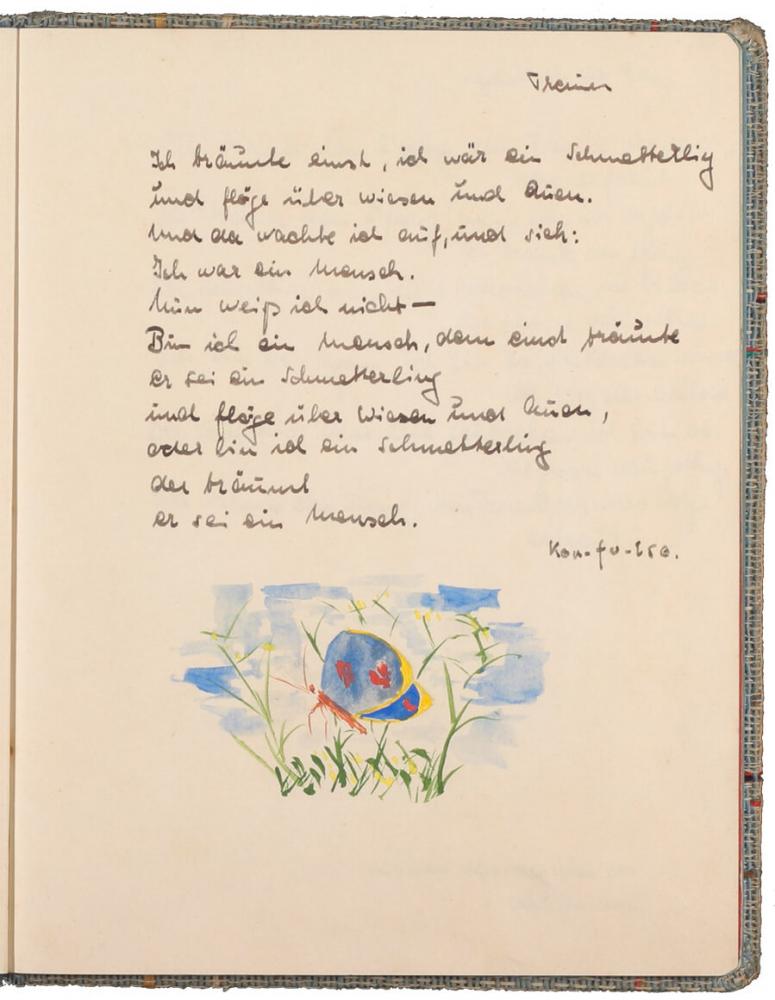 Ich träumte einst, ich wär ein Schmetterlig
und flöge über wiesen und Auen.
Und da wachte ich auf, und sieh:
Ich war ein Mensch.
Nun weiß ich nicht —
Bin ich ein Mensch, dem einst träumte
er sei ein Schmetterling
und flöge über Wiesen und Auen,
oder bin ich ein Schmetterling
der träumt
er sei ein Mensch.
Kon-fu-tse.